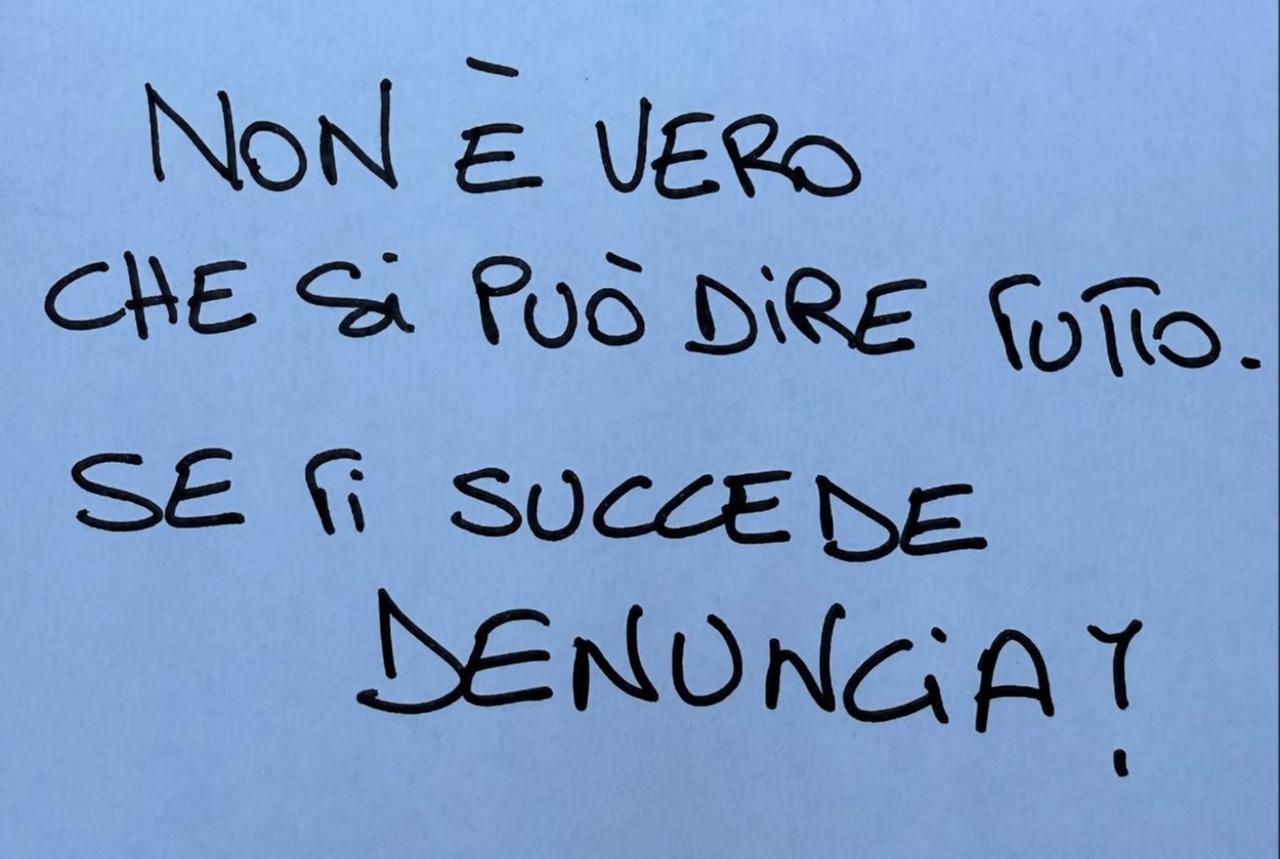 NON È VERO
CHE Si PUÒ DiRE TUTTO.
SE Ti SUCCEDE
DENUNCiA!